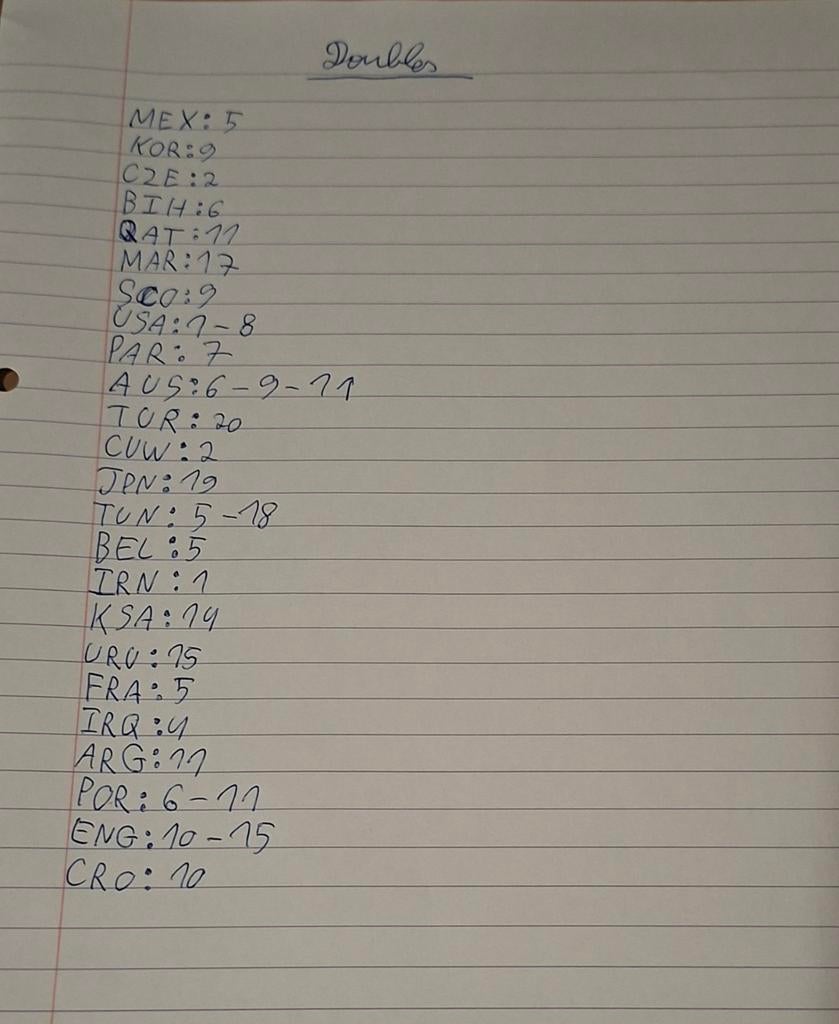 Doubles
MEX: 5
KOR: 9
CZE: 2
BIH: 6
QAT: 11
MAR: 17
SCO: 9
USA: 1-8
PAR: 7
AUS: 6-9-11
TUR: 20
CUW: 2
JPN: 19
TUN: 5-18
BEL: 5
IRN: 1
KSA: 14
URU: 15
FRA: 5
IRQ: 4
ARG: 11
POR: 6-11
ENG: 10-15
CRO: 10